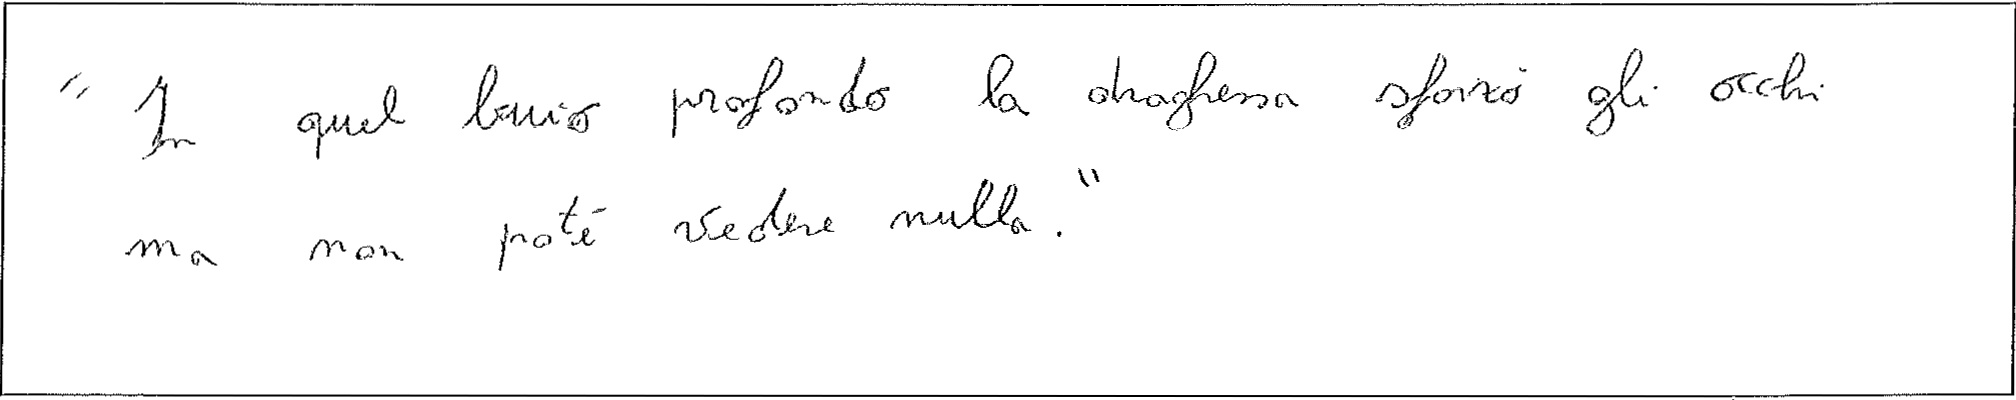 "In quel buio profondo la draghessa sforzò gli occhi
ma non poté vedere nulla."